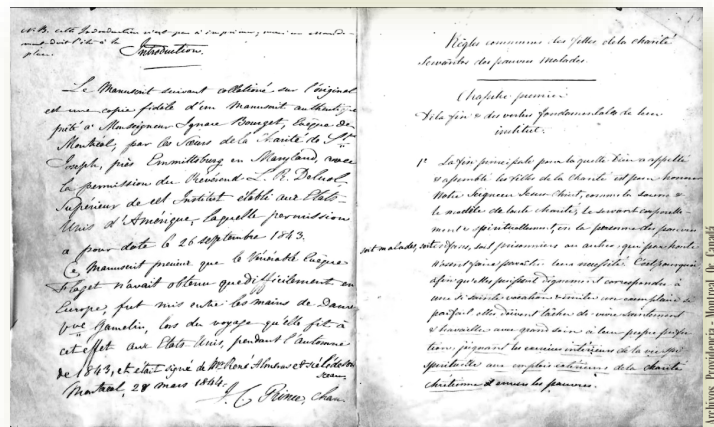 N. B. cette Introduction n'est pas à imprimer, mais un Mandement doit l'être à la
place.
Introduction.
Le Manuscrit suivant collationné sur l'original
est une copie fidèle d'un manuscrit authentique
prêté à Monseigneur Ignace Bourget, Evêque de
Montréal, par les Sœurs de la Charité de St
Joseph, près Emmittsburg en Maryland, avec
la permission du Révérend L. R. Deluol,
Supérieur de cet Institut établi aux Etats
Unis d'Amérique, laquelle permission
a pour date le 26 septembre 1843.
Ce Manuscrit précieux que le Vénérable Evêque
Flaget n'avait obtenu que difficilement en
Europe, fut mis entre les mains de Dame
Vve Gamelin, lors du voyage qu'elle fit à
cet effet aux Etats Unis, pendant l'Automne
de 1843, et était signé de Mr René Almeras et scellé de son
sceau.
Montréal, 28 mars 1844.
J. C. Prince, Chan.
Règles communes des filles de la charité
servantes des pauvres malades.
Chapitre premier
De la fin & des vertus fondamentales de leur
institut.
1º La fin principale pour laquelle Dieu a appellé
& assemblé les filles de la Charité est pour honorer
Notre Seigneur Jesus Christ, comme la source &
le modèle de toute charité, le servant corporelle-
ment & spirituellement, en la personne des pauvres
soit malades, soit enfans, soit prisonniers ou autres, qui par honte
n'osent faire paraître leur nécessité. C'est pourquoi
afin qu'elles puissent dignement correspondre à
une si sainte vocation & imiter un exemplaire si
parfait elles doivent tâcher de vivre saintement
& travailler avec grand soin à leur propre perfec-
tion, joignant les exercices intérieurs de la vie spi
spirituelle aux emplois extérieurs de la charité
chrétienne envers les pauvres.
Archivos Providencia - Montreal Qc Canadá